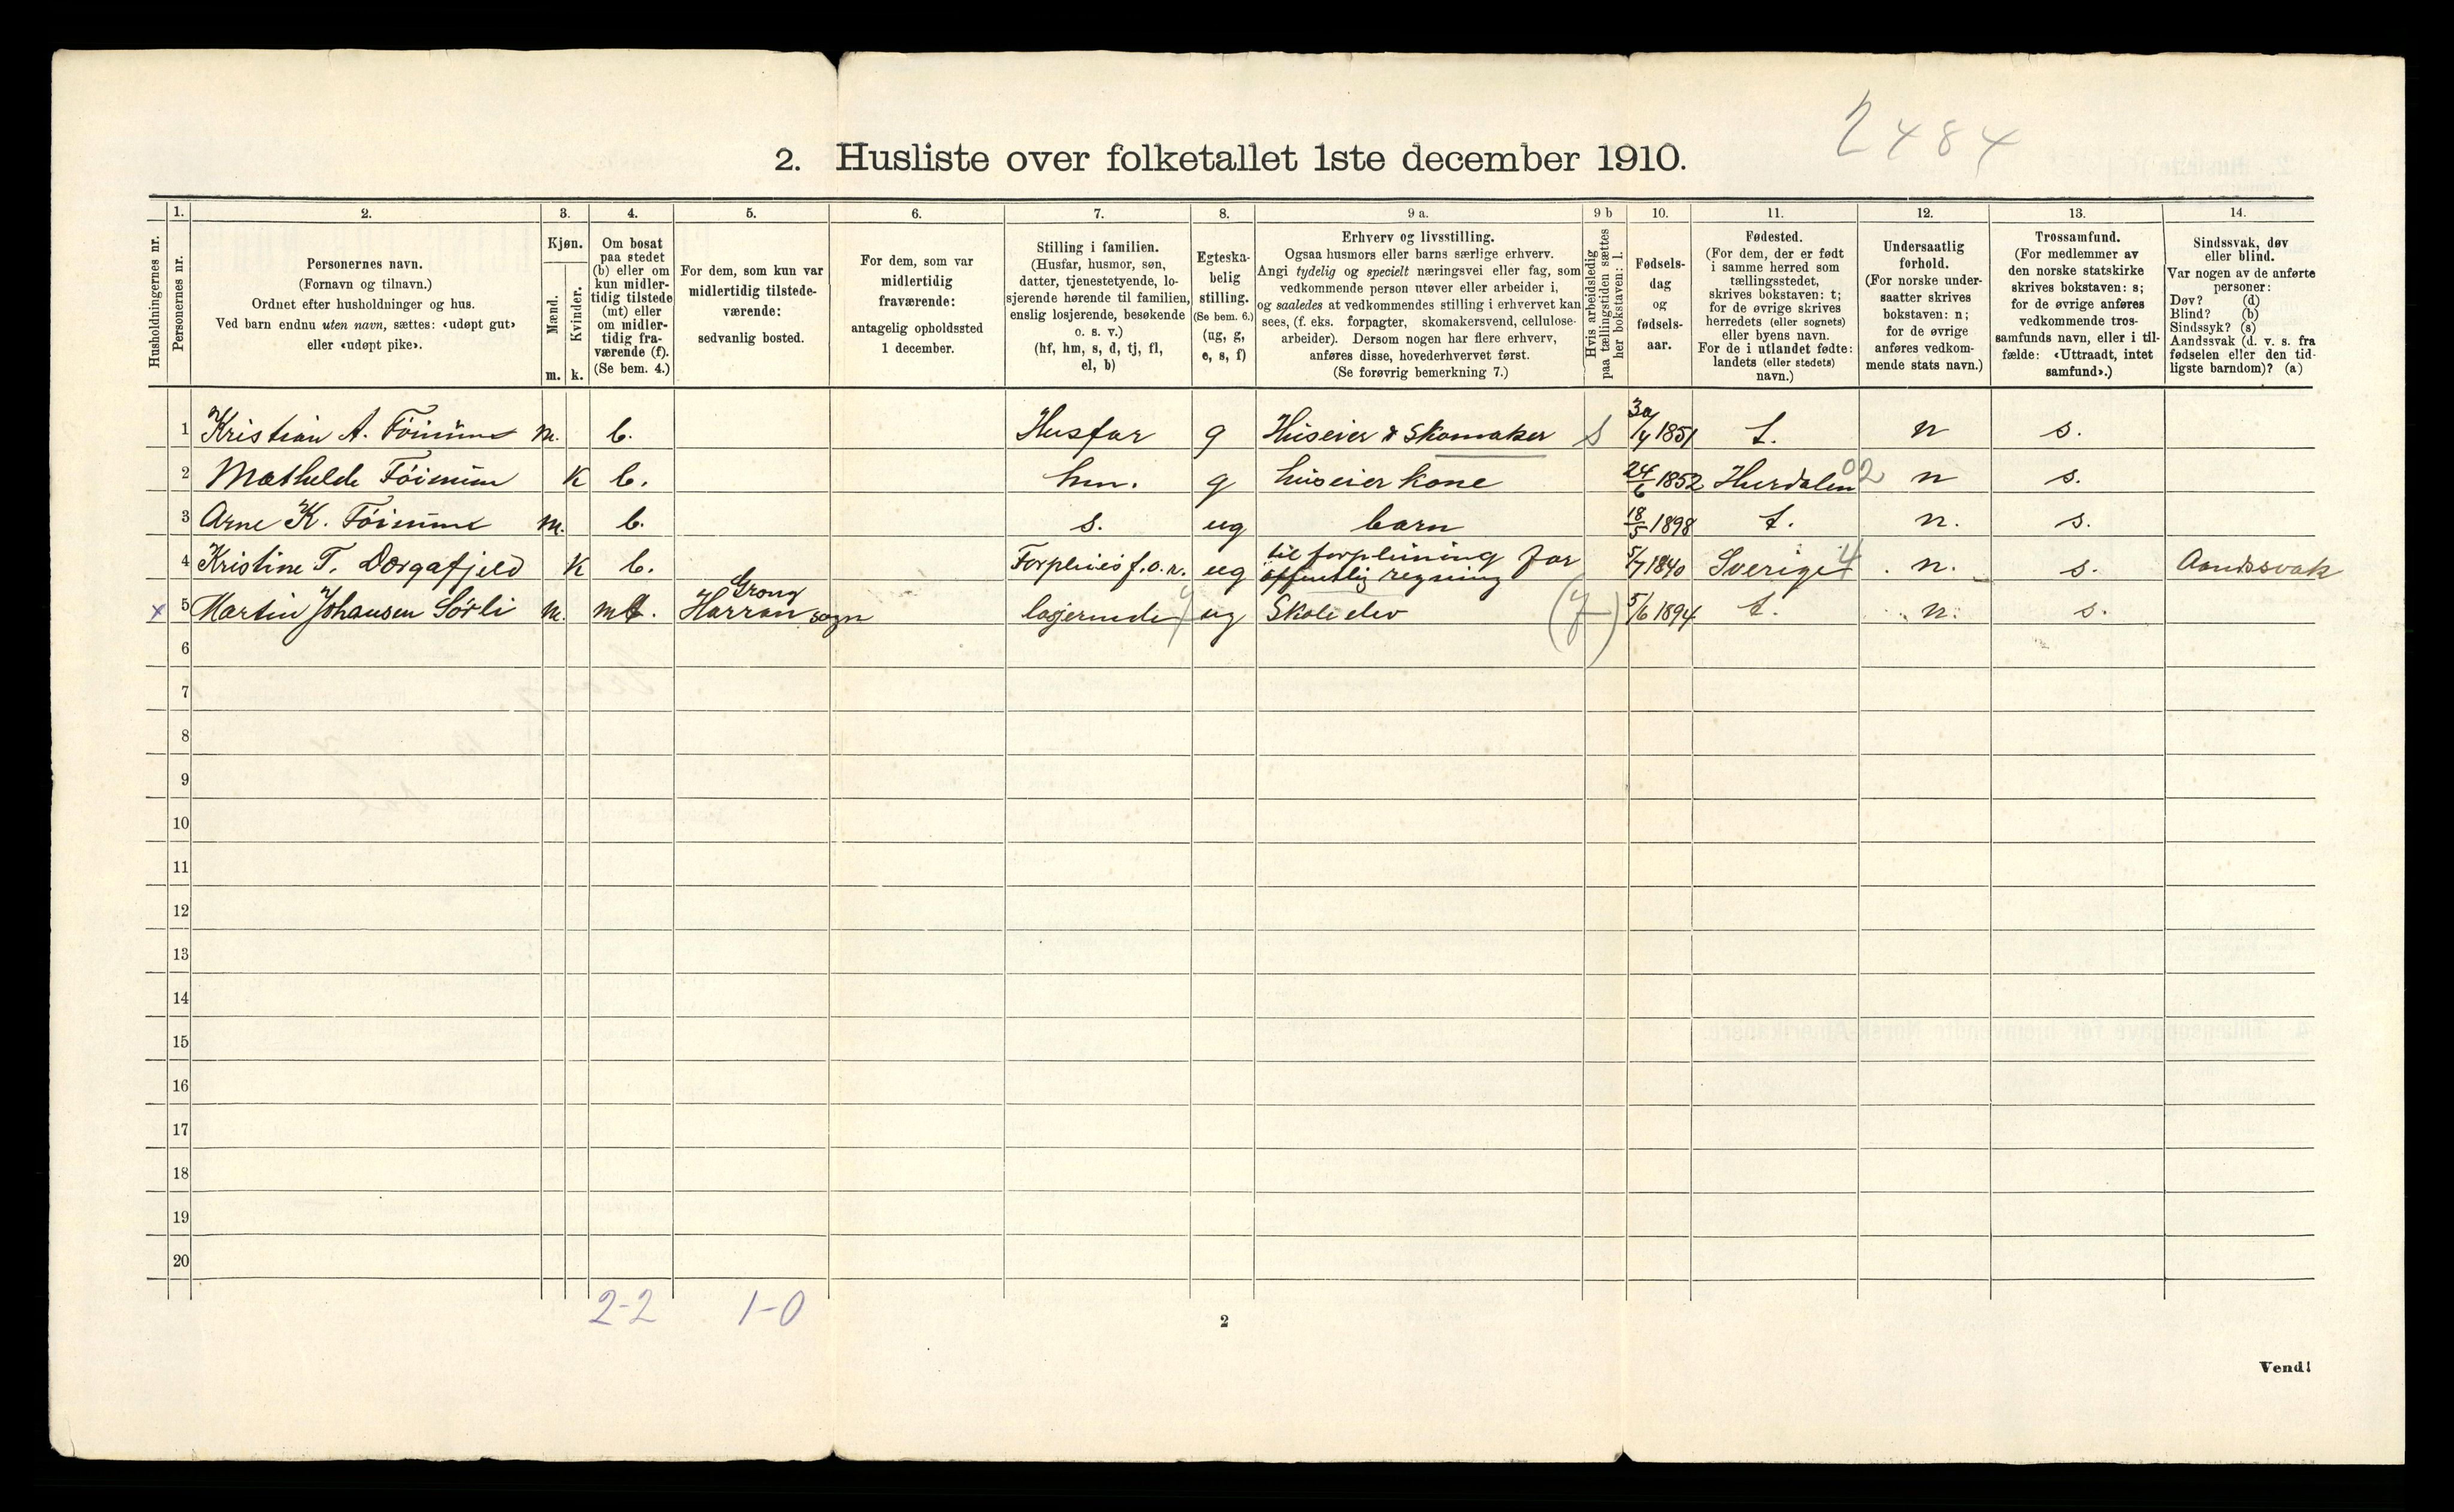 2484
2. Husliste over folketallet 1ste december 1910.
Husholdningernes nr.
1.
Personernes nr.
2.
Personernes navn.
(Fornavn og tilnavn.)
Ordnet efter husholdninger og hus.
Ved barn endnu uten navn, sættes: «udøpt gut»
eller «udøpt pike».
3.
Kjøn.
Mænd.
Kvinder.
m. k.
4.
Om bosat
paa stedet
(b) eller om
kun midler-
tidig tilstede
(mt) eller
om midler-
tidig fra-
værende (f).
(Se bem. 4.)
5.
For dem, som kun var
midlertidig tilstede-
værende:
sedvanlig bosted.
6.
For dem, som var
midlertidig
fraværende:
antagelig opholdssted
1 december.
7.
Stilling i familien.
(Husfar, husmor, søn,
datter, tjenestetyende, lo-
sjerende hørende til familien,
enslig losjerende, besøkende
o. s. v.)
(hf, hm, s, d, tj, fl,
el, b)
8.
Egteska-
belig
stilling.
(Se bem. 6.)
(ug, g,
e, s, f)
9 a.
Erhverv og livsstilling.
Ogsaa husmors eller barns særlige erhverv.
Angi tydelig og specielt næringsvei eller fag, som
vedkommende person utøver eller arbeider i,
og saaledes at vedkommendes stilling i erhvervet kan
sees, (f. eks. forpagter, skomakersvend, cellulose-
arbeider). Dersom nogen har flere erhverv,
anføres disse, hovederhvervet først.
(Se forøvrig bemerkning 7.)
9 b
Hvis arbeidsledig
paa tællingstiden sættes
her bokstaven: l.
10.
Fødsels-
dag
og
fødsels-
aar.
11.
Fødested.
(For dem, der er født
i samme herred som
tællingsstedet,
skrives bokstaven: t;
for de øvrige skrives
herredets (eller sognets)
eller byens navn.
For de i utlandet fødte:
landets (eller stedets)
navn.)
12.
Undersaatlig
forhold.
(For norske under-
saatter skrives
bokstaven: n;
for de øvrige
anføres vedkom-
mende stats navn.)
13.
Trossamfund.
(For medlemmer av
den norske statskirke
skrives bokstaven: s;
for de øvrige anføres
vedkommende tros-
samfunds navn, eller i til-
fælde: «Uttraadt, intet
samfund».)
14.
Sindssvak, døv
eller blind.
Var nogen av de anførte
personer:
Døv? (d)
Blind? (b)
Sindssyk? (s)
Aandssvak (d. v. s. fra
fødselen eller den tid-
ligste barndom)? (a)
1 Kristian A. m. b. Husfar g Huseier & Skomaker s 30/4 1851 t. n s.
2 Mathilde k b. hm. g huseier kone 24/6 1852 Hurdalen 02 n s.
3 Arne K. m. b. s. ug barn 18/5 1898 t. n. s.
4 Kristine T. Dorgafjeld k b. Forpleies f.o.r. ug til forpleining for
öffentlig regning 5/7 1840 Sverige 4 n. s. Aandssvak
x 5 Martin Johansen Sørli m. mt. Grong
Harran sogn losjerende ug Skole elev 5/6 1894 t. n. s.
6
7
8
9
10
11
12
13
14
15
16
17
18
19
20
2-2 1-0
2
Vend!